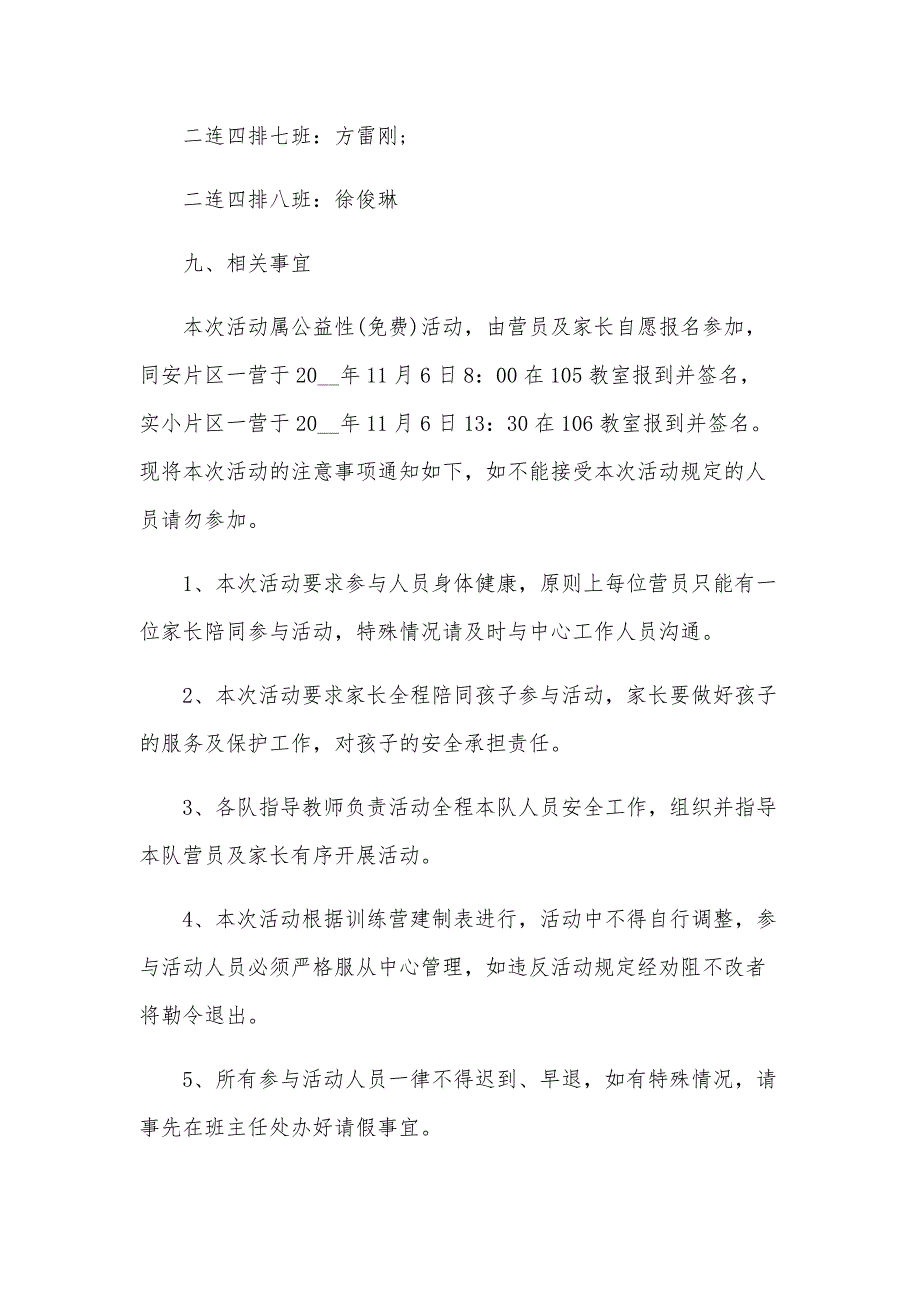 二连四排七班：方雷刚;
二连四排八班：徐俊琳
九、相关事宜
本次活动属公益性(免费)活动，由营员及家长自愿报名参加，
同安片区一营于 20__年 11 月 6 日 8：00 在 105 教室报到并签名，
实小片区一营于 20__年 11 月 6 日 13：30 在 106 教室报到并签名。
现将本次活动的注意事项通知如下，如不能接受本次活动规定的人
员请勿参加。
1、本次活动要求参与人员身体健康，原则上每位营员只能有一
位家长陪同参与活动，特殊情况请及时与中心工作人员沟通。
2、本次活动要求家长全程陪同孩子参与活动，家长要做好孩子
的服务及保护工作，对孩子的安全承担责任。
3、各队指导教师负责活动全程本队人员安全工作，组织并指导
本队营员及家长有序开展活动。
4、本次活动根据训练营建制表进行，活动中不得自行调整，参
与活动人员必须严格服从中心管理，如违反活动规定经劝阻不改者
将勒令退出。
5、所有参与活动人员一律不得迟到、早退，如有特殊情况，请
事先在班主任处办好请假事宜。